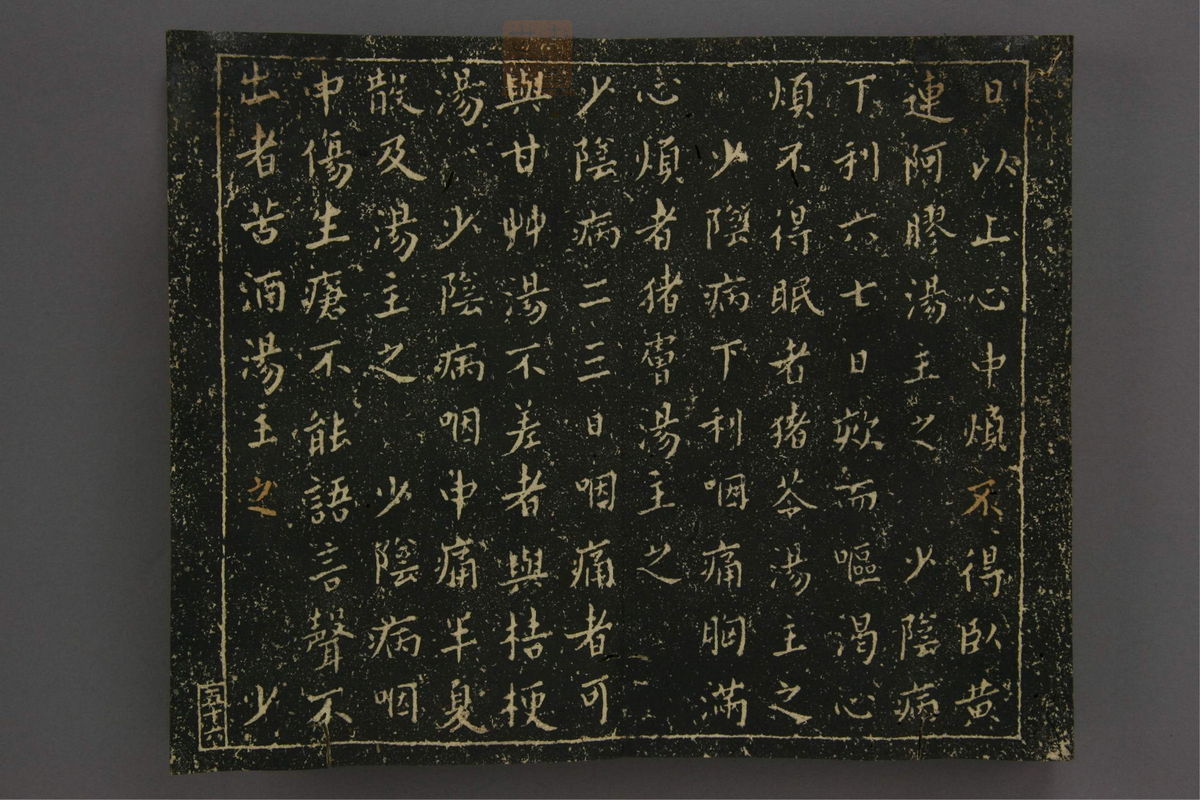 日以上心中煩不得卧黄
連阿膠湯主之 少陰病
下利六七日欬而嘔渴心
煩不得眠者猪苓湯主之
少陰病下利咽痛胸滿
心煩者猪膚湯主之
少陰病二三日咽痛者可
與甘艸湯不差者與桔梗
湯 少陰病咽中痛半夏
散及湯主之 少陰病咽
中傷生瘡不能語言聲不
出者苦酒湯主之 少
五十六